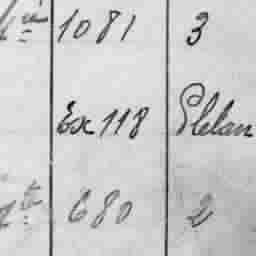 1081 3
Ex 118 Plelan
680 2